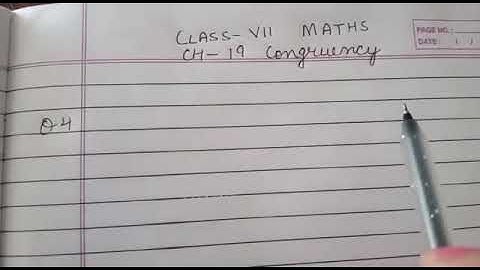 CLASS-VII MATHS
CH-19 Congruency
PAGE NO.:
DATE: / /
Q4